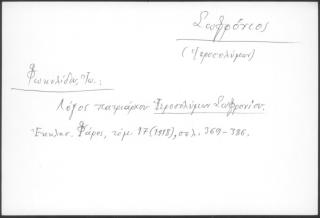 Σωφρόνιος
(Ἱεροσολύμων)
Φωκυλίδης, Ἰω.
Λόγος πατριάρχου Ἱεροσολύμων Σωφρονίου.
Ἐκκλησ. Φάρος, τόμ. 17 (1918), σελ. 369-386.